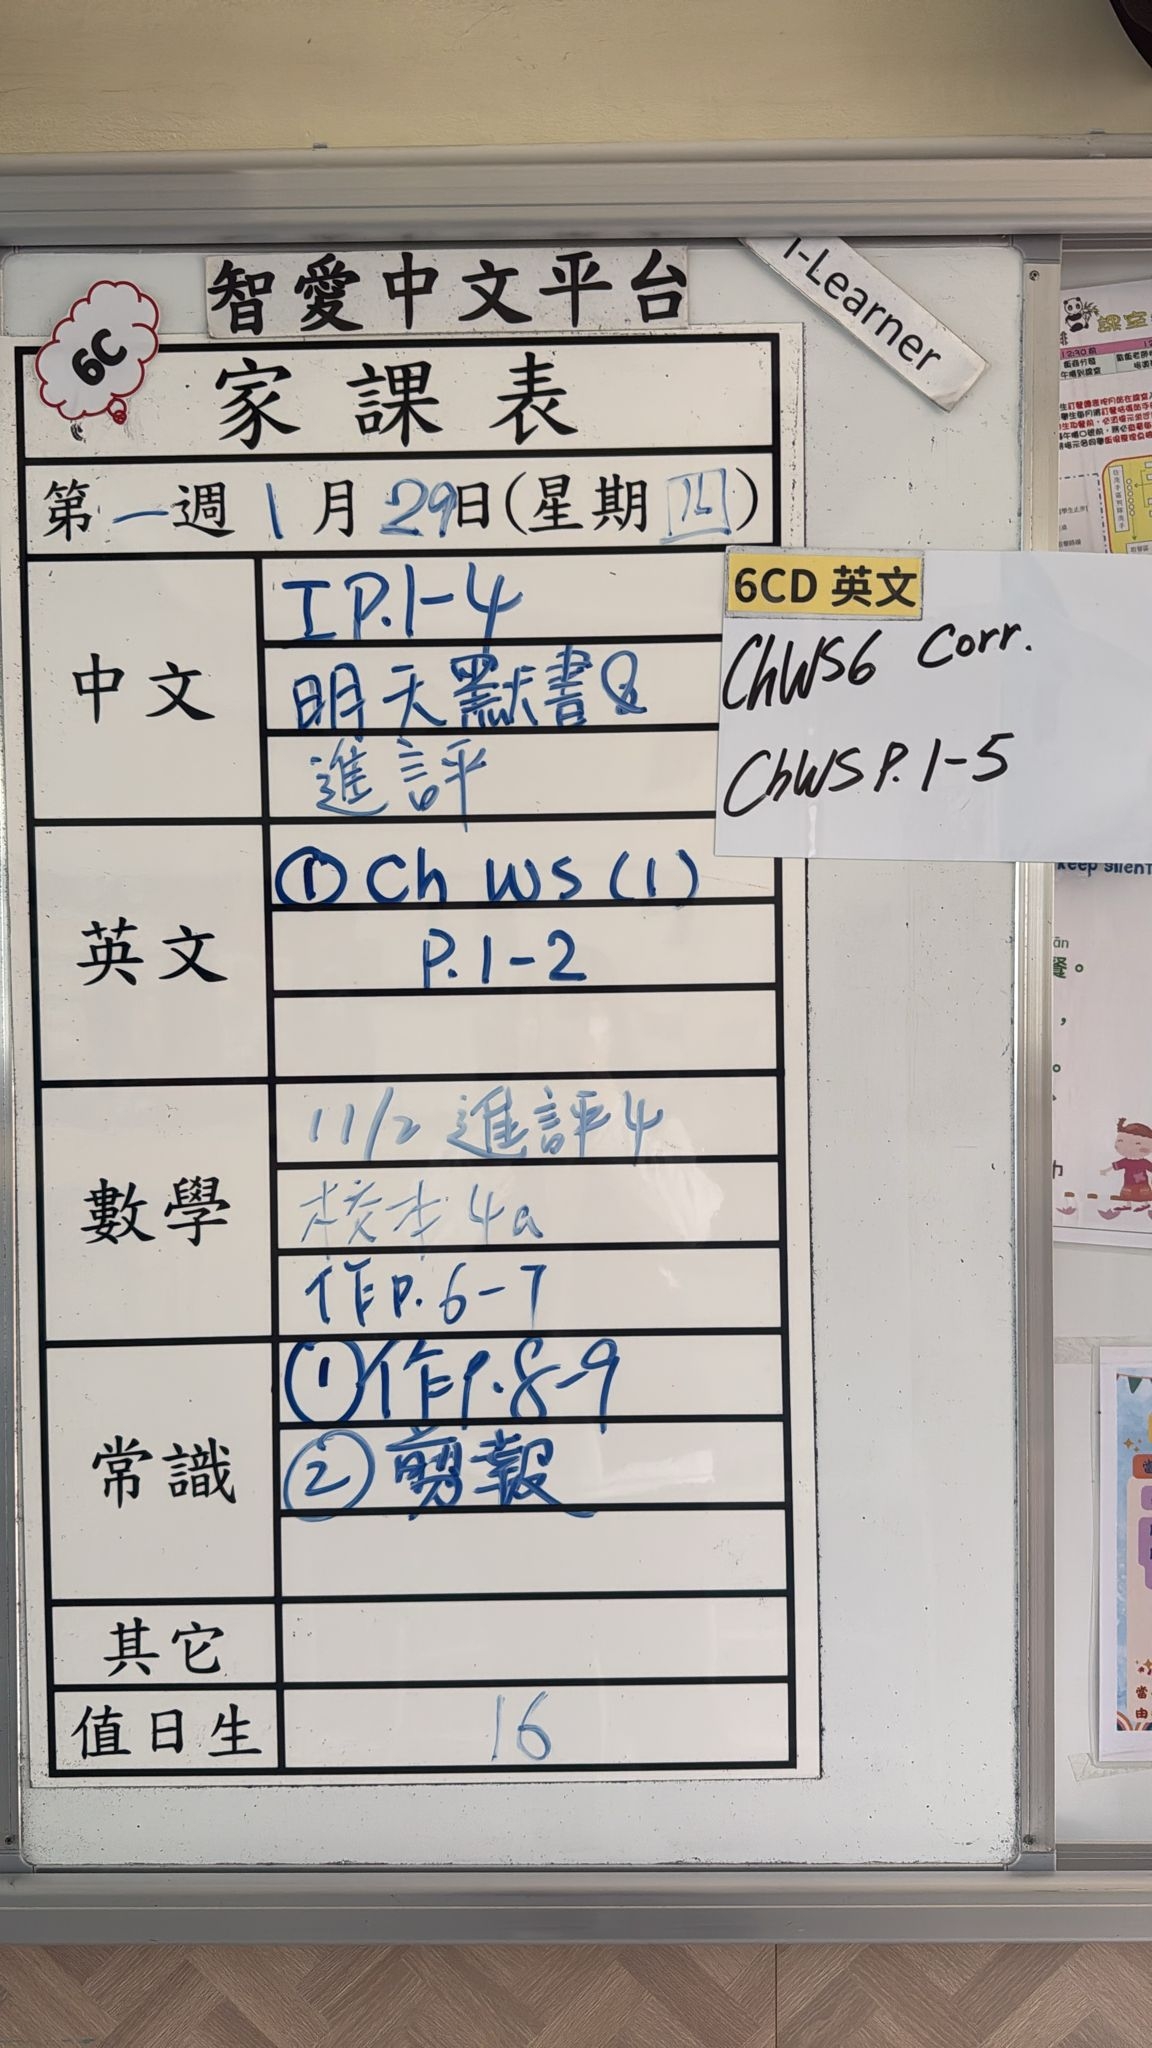 智愛中文平台
i-Learner
6C
家課表
第一週 1月29日(星期四)
中文
I P.1-4
明天默書8
進評
6CD 英文
ChWS6 Corr.
ChWS P.1-5
英文
① Ch WS (1)
P.1-2
數學
11/2 進評4
校本4a
作P.6-7
常識
①作P.8-9
②剪報
其它
值日生
16
keep silent